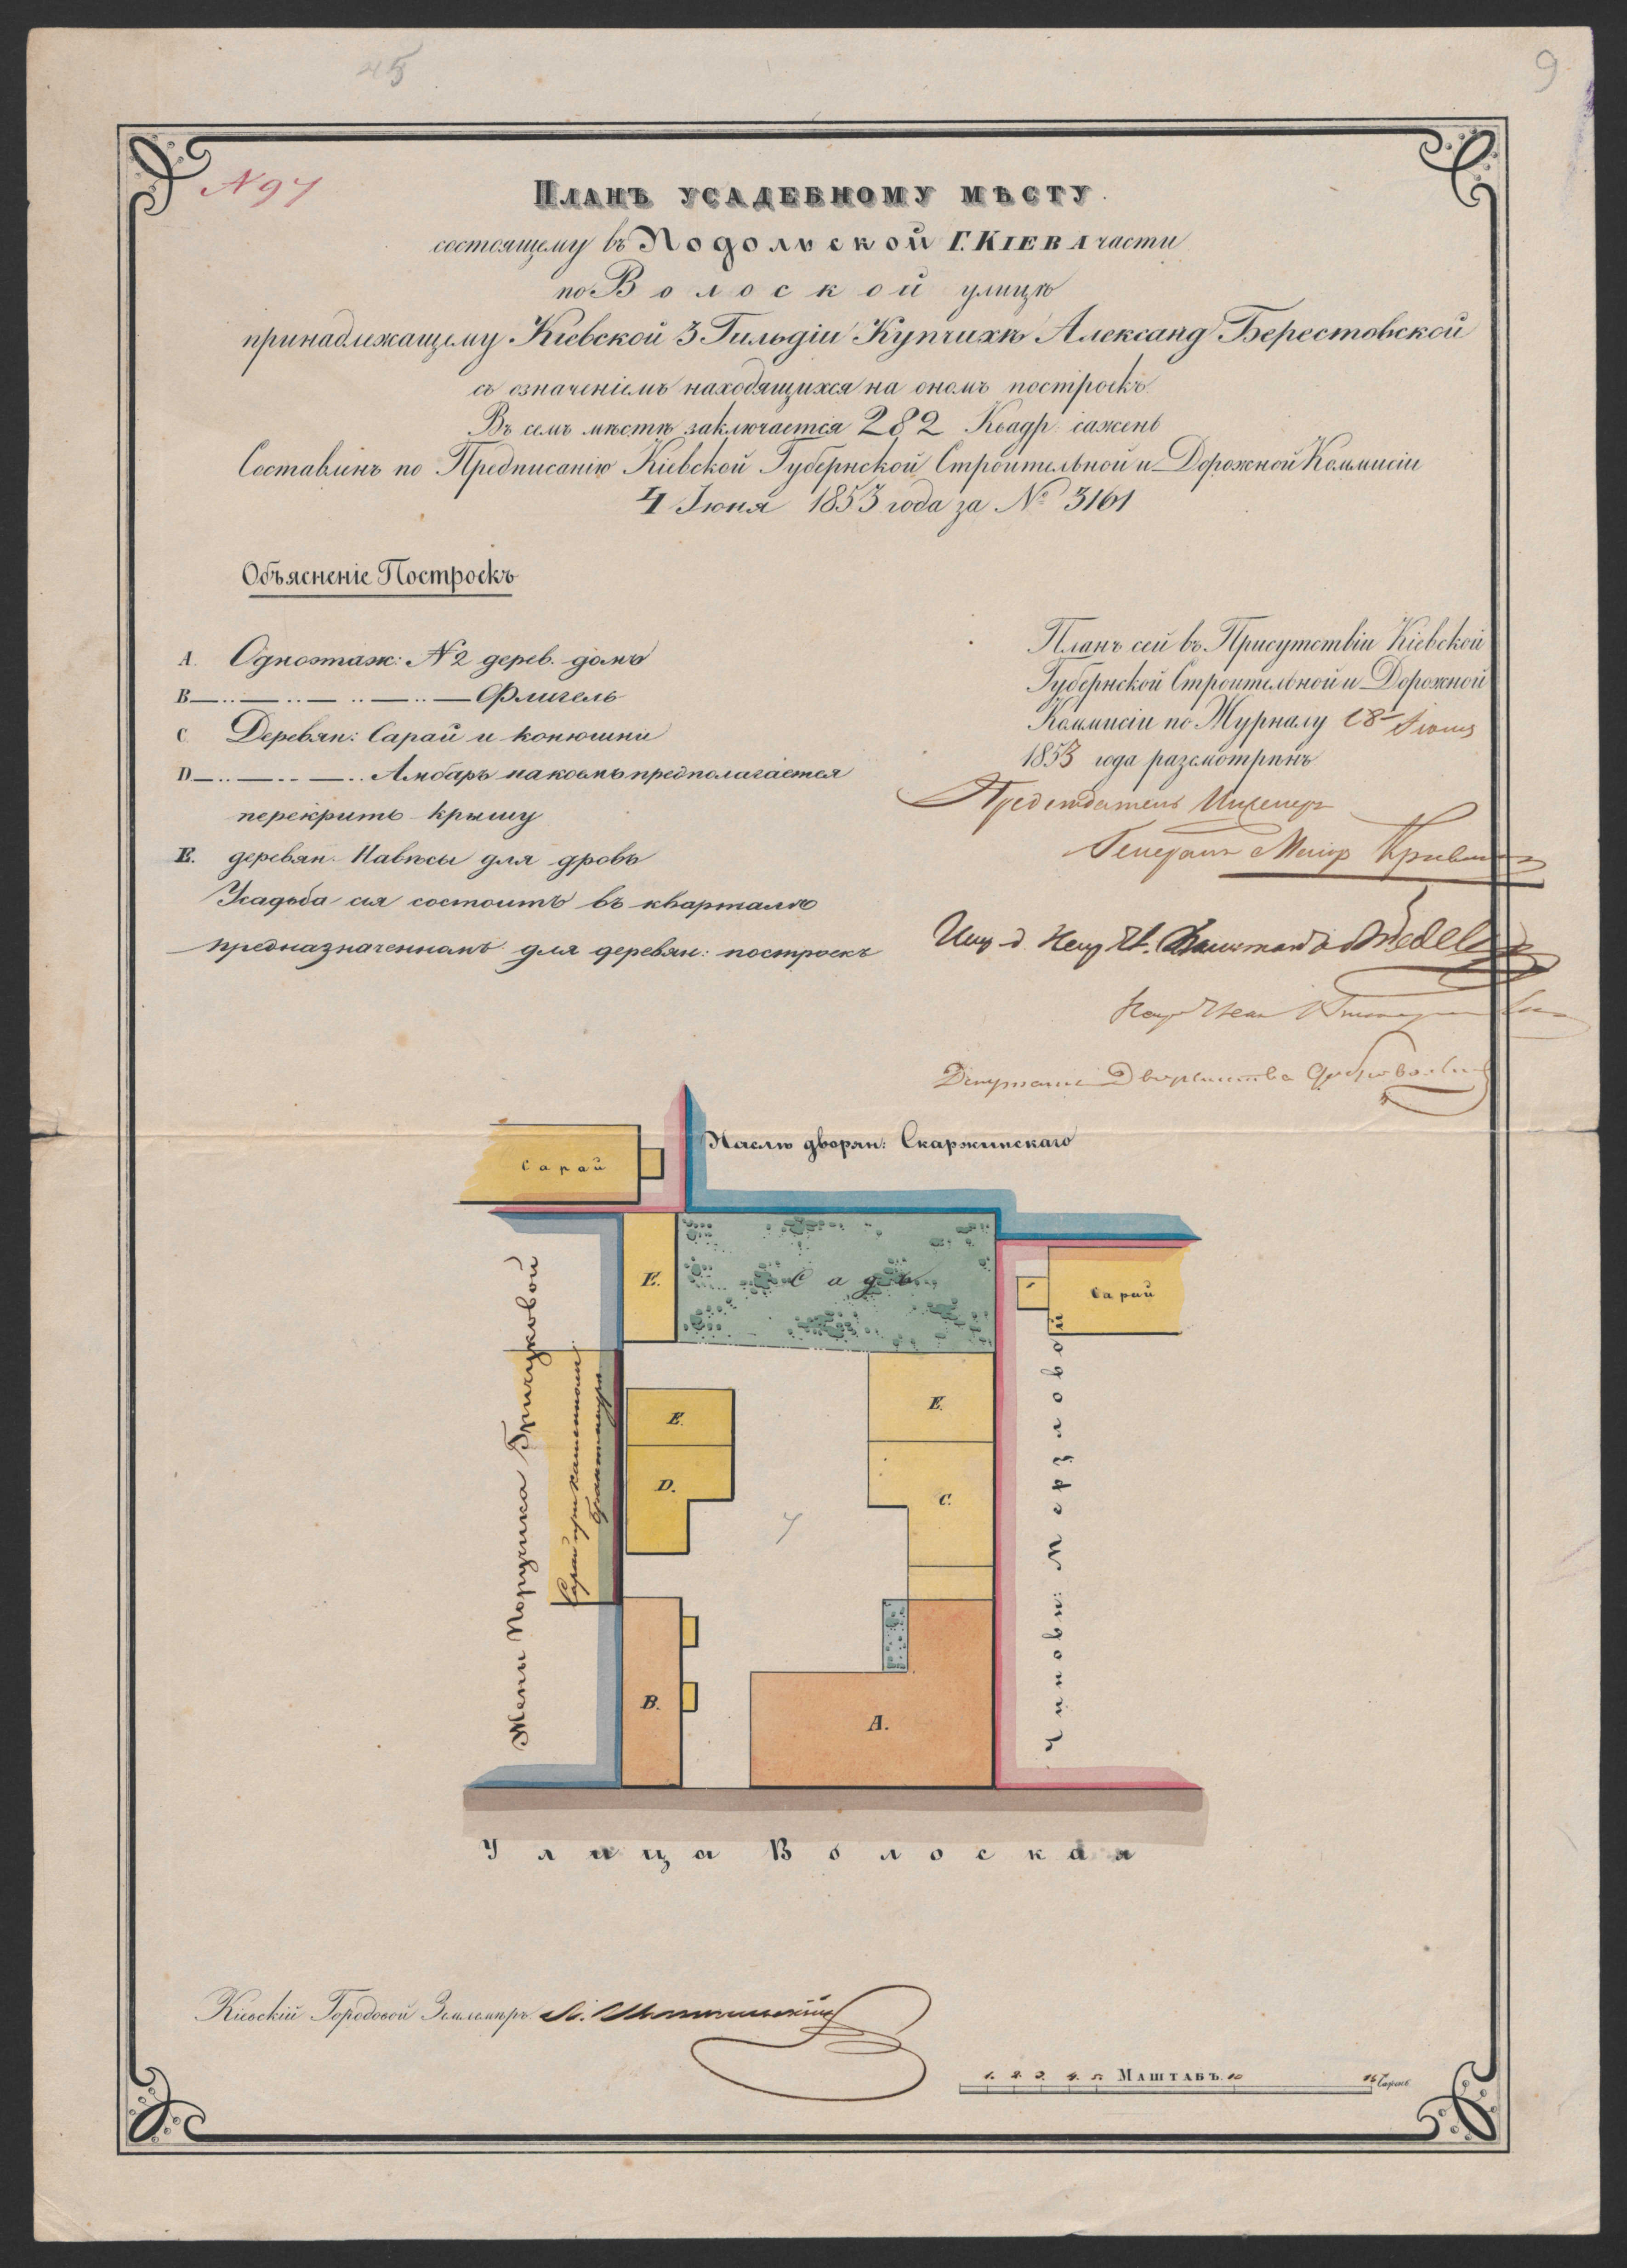 45
9
N 97
Планъ усадебному мѣсту
состоящему въ Подольской Г. Кіева части
по Волоской улицѣ
принадлежащему Кіевской 3 Гильдіи Купчихѣ Александ Берестовской
съ означеніемъ находящихся на ономъ построекъ
Въ семъ мѣстѣ заключается 282 Квадр. сажень
Составленъ по Предписанію Кіевской Губернской Строительной и Дорожной Коммисіи
4 Іюня 1853 года за № 3161
Объясненіе Построекъ
A. Одноэтаж: № 2 дерев. домъ
B — .. — .. — .. — .. — Флигель
C. Деревян: Сарай и конюшни
D — .. — .. — .. Амбаръ на коемъ предполагается
перекрыть крышу
E. деревян. Навѣсы для дровъ
Усадьба сія состоитъ въ кварталѣ
предназначенномъ для деревян: построекъ
Планъ сей въ Присутствіи Кіевской
Губернской Строительной и Дорожной
Коммисіи по Журналу 18 Іюня
1853 года разсмотрѣнъ
Предсѣдатель Инженеръ
Генералъ Маіоръ
Депутатъ Дворянства
Наслѣ дворян: Скаржинскаго
Сарай
E.
Садъ
Сарай
Жены Поручика Гричуковой
Сарай при каменномъ
брантмауръ
E.
D.
E.
C.
Чиновн: Мерзловой
B.
A.
Улица Волоская
Кіевскій Городовой Землемѣръ
1. 2. 3. 4. 5. Маштабъ. 10 16 Сажень